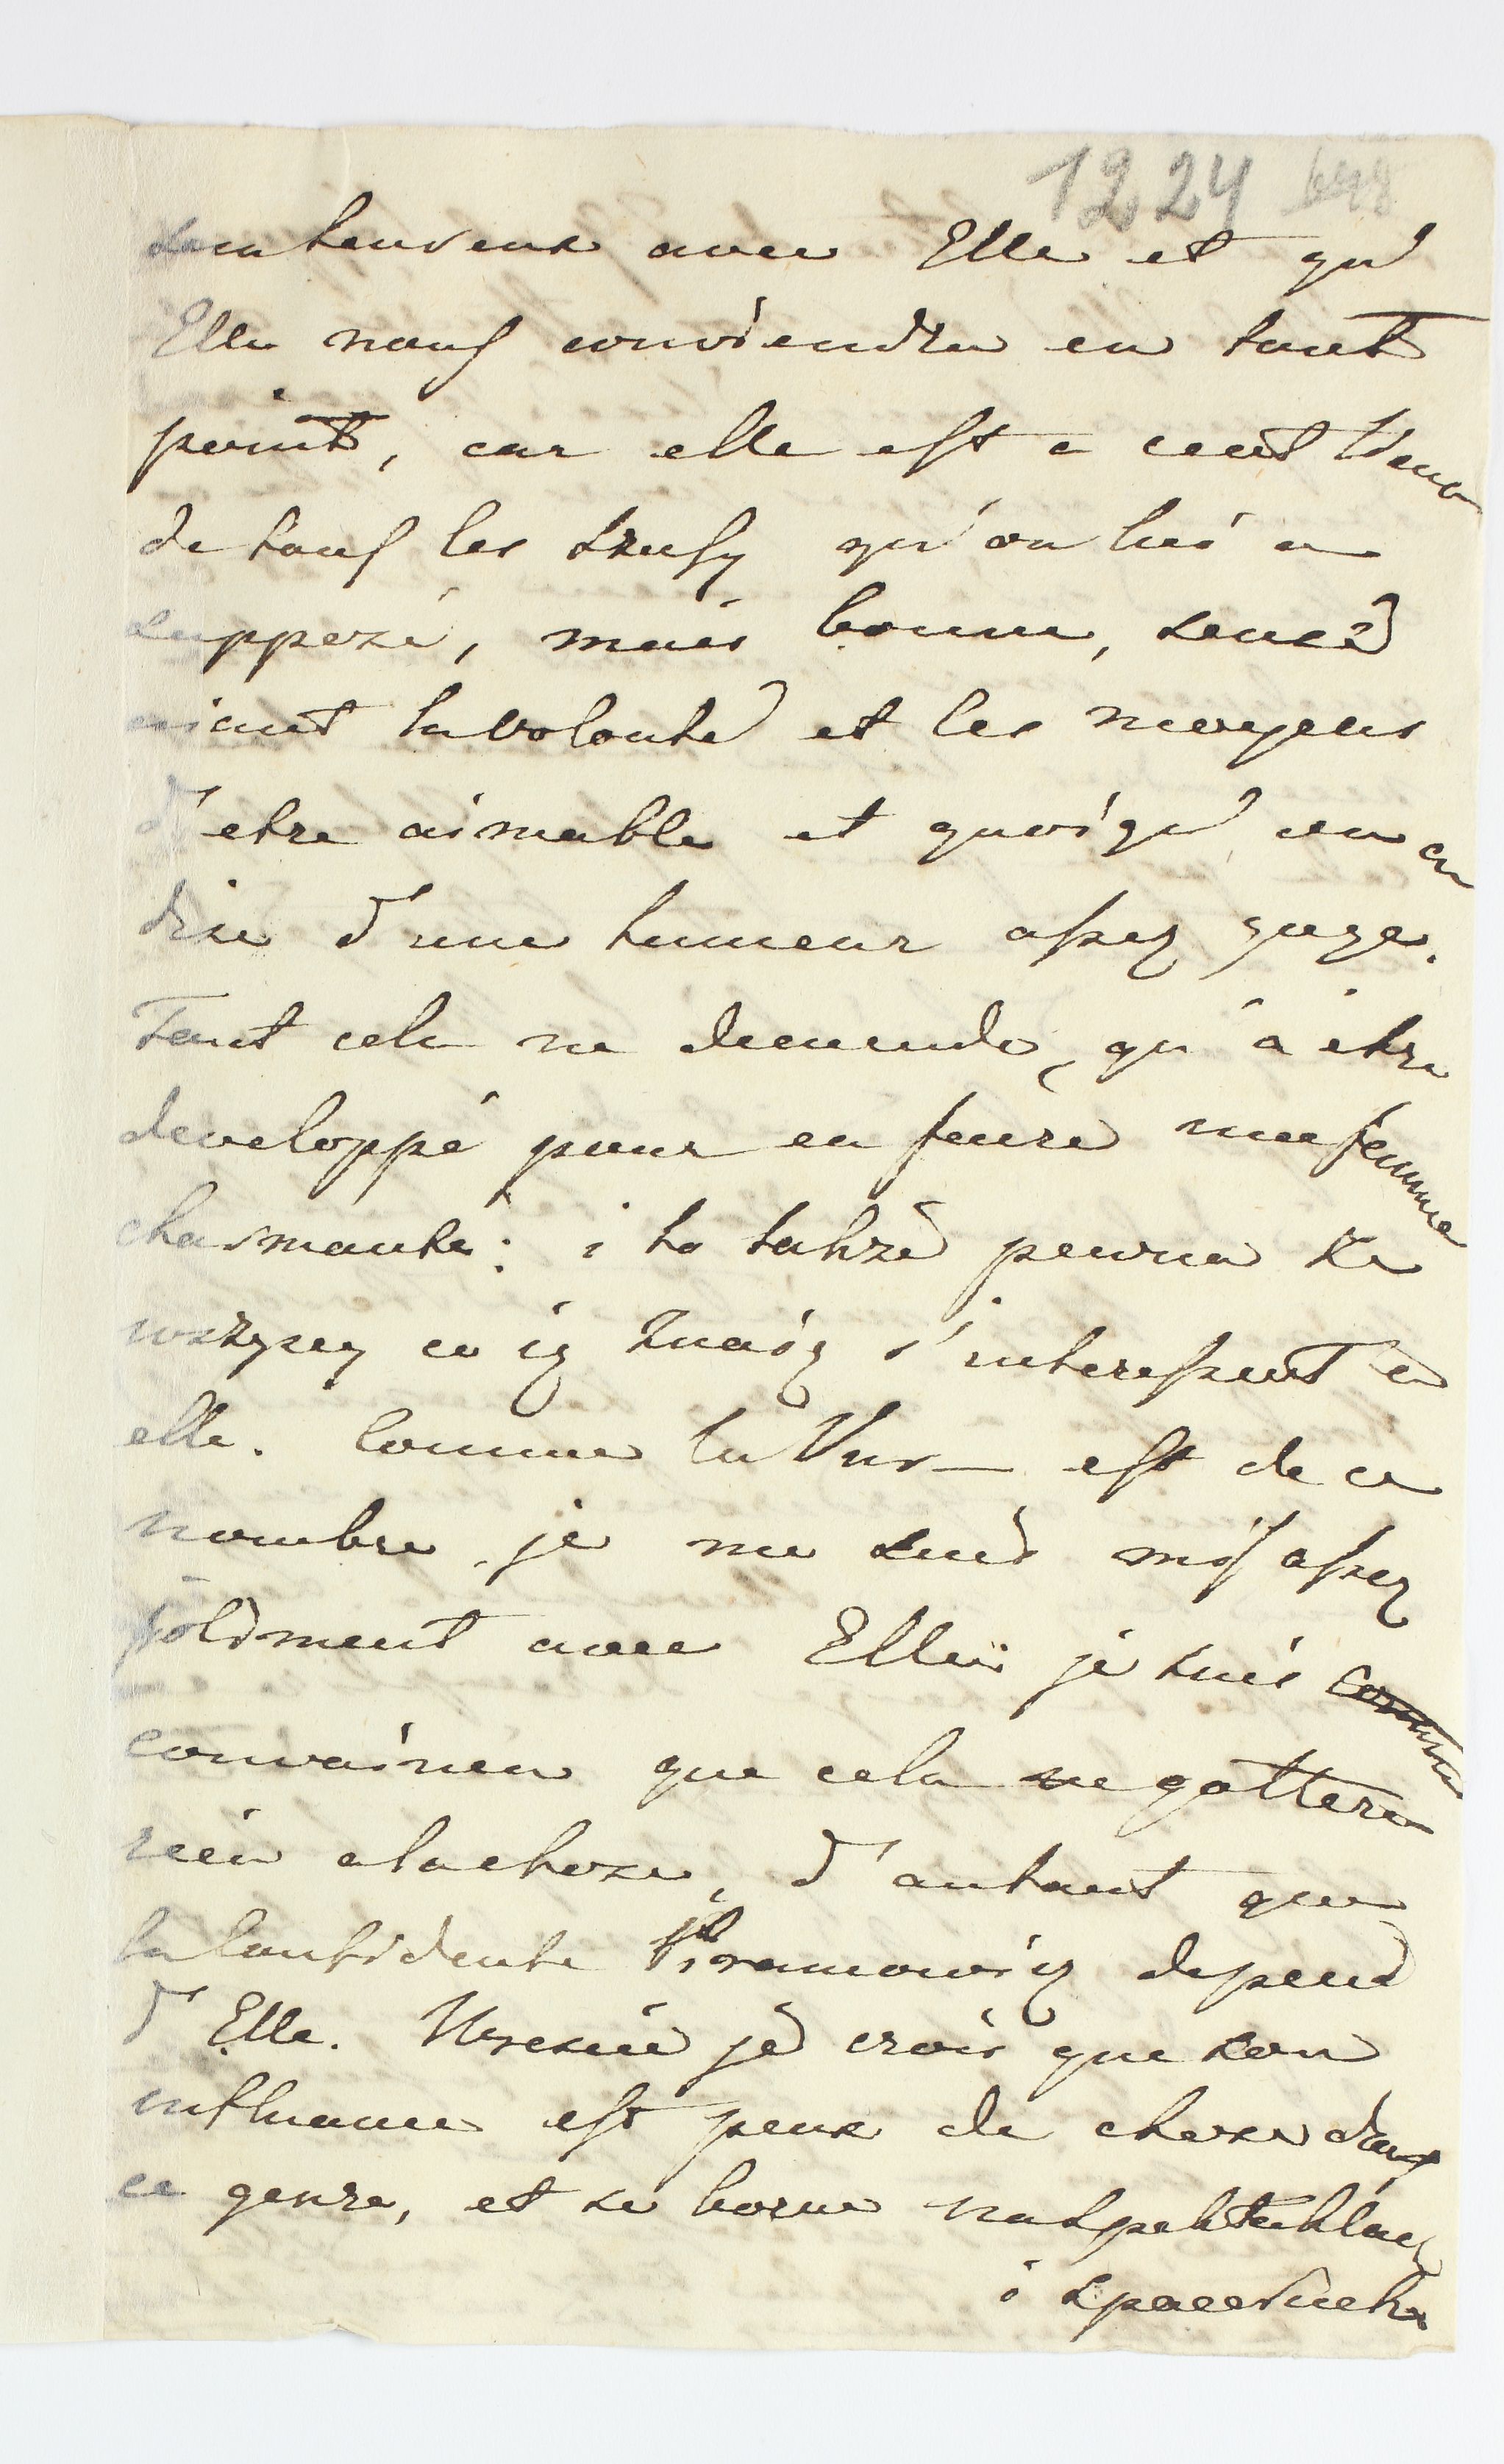 1224 698
seu heureux avec Elle et qu'
Elle nous conviendra en tout
point, car elle est a cent lieux
de tous les sztuky qu'on lui a
supposé, mais bonne, sensé
aiant la volonté et les moyens
d'etre aimable et quoiqu' on en
dise d'une humeur assez gaye.
Tout cela ne demande, qu'à etre
developpé pour en faire une femme
charmante: i to takze pewna ze
wszyscy co ią znaią s'interessent à
elle. Comme la Vur— est de ce
nombre je me suis mis assez
joliment avec Elle: je suis
convaincu que cela ne gattera
rien a la chose, d'autant que
la Confidente Piramowicz depend
d'Elle. Ursesie je crois que son
influance est peux de chose dans
ce genre, et se borne na spektaklach
i spacerach